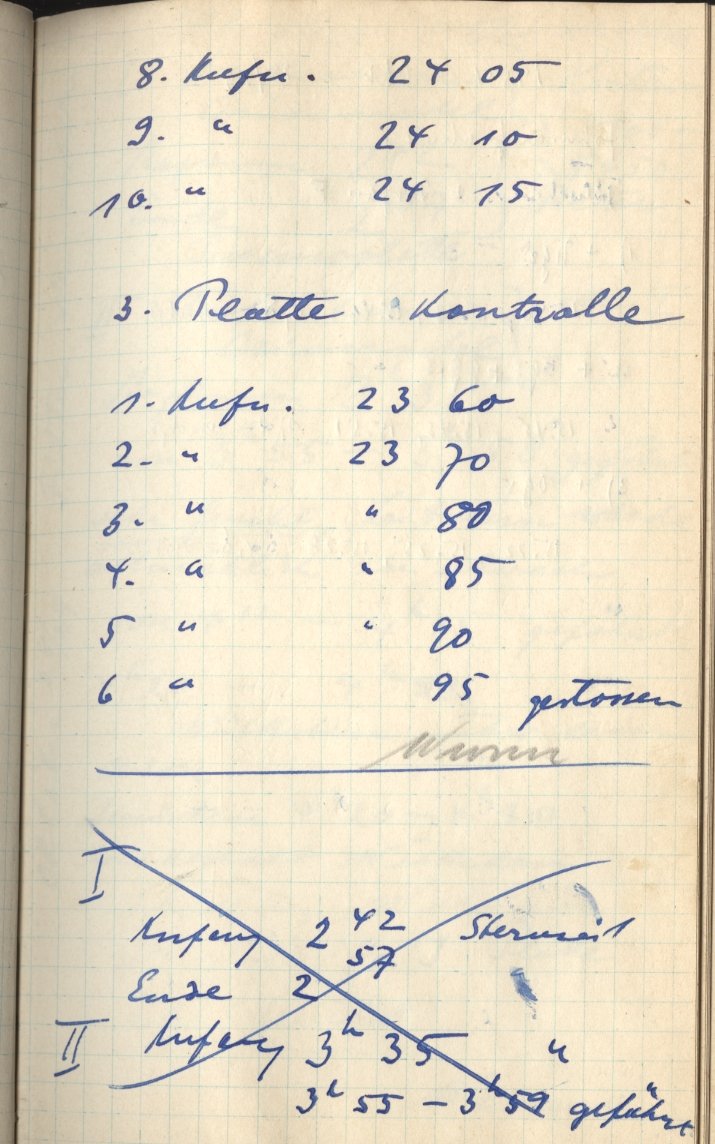 8. Aufn. 24 05
9. " 24 10
10. " 24 15
3. Platte Kontrolle
1. Aufn. 23 60
2. " 23 70
3. " " 80
4. " " 85
5 " " 90
6 " 95 gestossen
I
Anfang 2 42 Sternzeit
Ende 2 57 "
II Anfang 3h 35 "
3h 55 – 3h 59 geführt